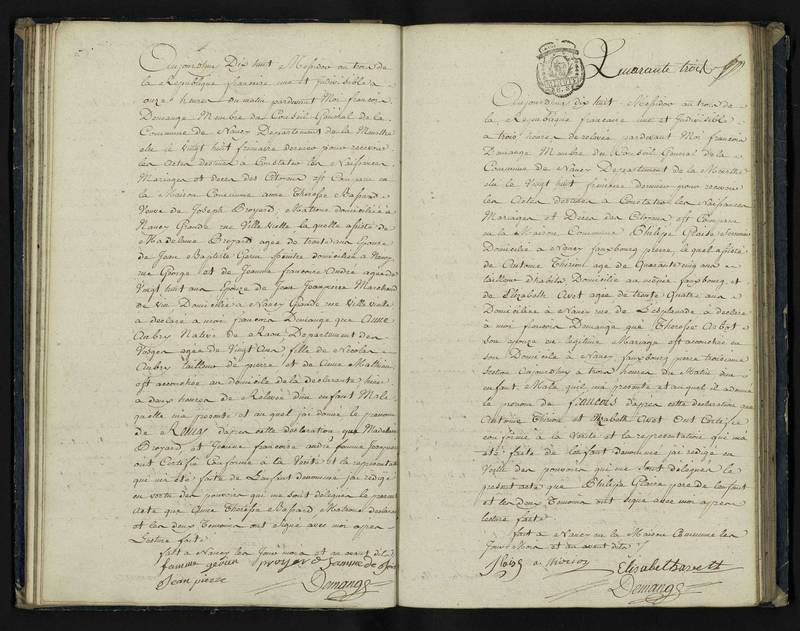 Aujourdhui Dix huit Messidor an trois de
la Republique francaise une et Indivisible a
onze heures du matin pardevant Moi françois
Demange Membre du Conseil General de la
Commune de Nancy Departement de la Meurthe
elu le Vingt huit frimaire dernier pour recevoir
les Actes destinés a Constater les Naissances
Mariages et deces des Citoiens est Comparue en
la Maison Commune anne Therese Bassard
Veuve de Joseph Broyard, Matrone domiciliée a
Nancy Grande rue Ville vielle la quelle assistée de
Madelaine Broyard agée de trente ans Epouse
de Jean Baptiste Peintre domiciliée a Nancy
rue George et de Jeanne francoise André agée de
Vingt huit ans Epouse de Jean Jeanpierre Marchand
de vin Domiciliée a Nancy Grande rue Ville vielle
a declaré a moi francois Demange que Anne
Aubry Native de Raon Departement des
Vosges agée de Vingt Ans fille de Nicolas
Aubry tailleur de pierre et de Anne Mathieu
est accouchée au domicile de la declarante hier
a deux heures de Relevée d'un enfant Male
quelle ma presenté et auquel jai donné le prenom
de dapres cette declaration que Madelaine
Broyard et Jeanne francoise andré femme Jeanpierre
ont Certifié Conforme à la Verité et la representation
qui ma été faite de Lenfant denommé jai redigé
en vertu des pouvoirs qui me sont delegués le present
acte que Anne Therese Bassard Matrone declarante
et les deux Temoins ont signé avec moi apres
Lecture faite
fait a Nancy les Jours mois et an avant dits
famme broyard famme de
Jean pierre Demange
Quarante trois
Aujourdhui dix huit Messidor an trois de
la Republique francaise une et Indivisible
a trois heures de relevée pardevant Moi francois
Demange Membre du Conseil General de la
Commune de Nancy Departement de la Meurthe
elu le Vingt huit frimaire dernier pour recevoir
les Actes destinés a Constater les Naissances
Mariages et Deces des Citoiens est Comparu
en la Maison Commune Philippe
Domicilié a Nancy fauxbourg pierre lequel assisté
de Antoine Thirion agé de Quarante cinq ans
tailleur d'habits Domicilié au même fauxbourg et
de Elizabeth Avet agée de trente Quatre ans
Domiciliée a Nancy rue de Lesplanade a déclaré
a moi francois Demange que Therese
son epouse en legitime Mariage est accouchée en
son Domicile a Nancy fauxbourg pierre troisieme
Section Aujourdhuy a trois heures du Matin d'un
enfant Male quil ma presenté et auquel il a donné
le prenom de francois dapres cette declaration que
Antoine Thirion et Elizabeth Avet Ont Certifié
conforme à la Verité et la representation qui ma
été faite de lenfant denommé jai redigé en
Vertu des pouvoirs qui me sont delegués le
present acte que Philippe pere de lenfant
et les deux Temoins ont signé avec moi apres
lecture faite
fait a Nancy en la Maison Commune les
Jour Mois et an avant dits
a thirion Elisabeth avett
Demange